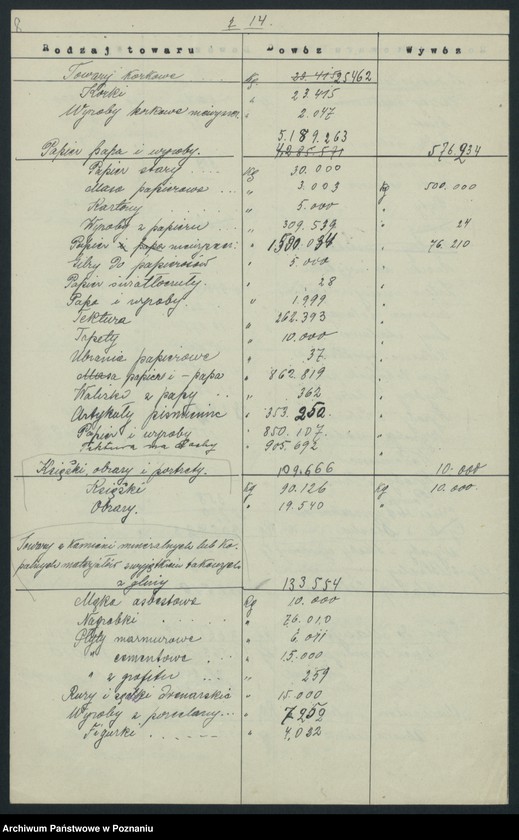 8
14.
Rodzaj towaru Dowóz Wywóz
Towary korkowe . . . . Kg. 23.415 25462
Korki " 23415
Wyroby korkowe " 2.047
5.189.263
Papier papa i wyroby. 576.934
Papier stary . . . Kg 30.000
Masa papierowa . . . " 3.003 kg 500.000
Kartony " 5.000 "
Wyroby z papieru . . " 309.539 " 24
Papier " 1580.034 " 76.210
Gilzy do papierosów " 5.000
Papier światłoczuły. " 28
Papa i wyroby. " 1.999
Tektura " 262.393
Tapety " 10.000
Ubrania papierowe " 37.
Masa papier i - papa " 862.819
Walizki z papy . . . " 362
Artykuły piśmienne " 353.250.
Papier i wyroby " 850.107.
Tektura na dachy " 905.692
Książki, obrazy i portrety. 109.666 10.000
Książki Kg 90.126 Kg 10.000.
Obrazy. " 19.540 "
Towary z kamieni mineralnych lub ko-
palnych z wyjątkiem takowych
z gliny 133554
Mąka asbestowa Kg 10.000
Nagrobki . . . . . " 76.010
Płyty marmurowe " 6.011
" cementowe . . . " 15.000
" z grafitu . . . " 259
Rury i drenarskie " 15.000
Wyroby z porcelany . . . " 7252
Figurki . - - - - - " 4.032
Archiwum Państwowe w Poznaniu